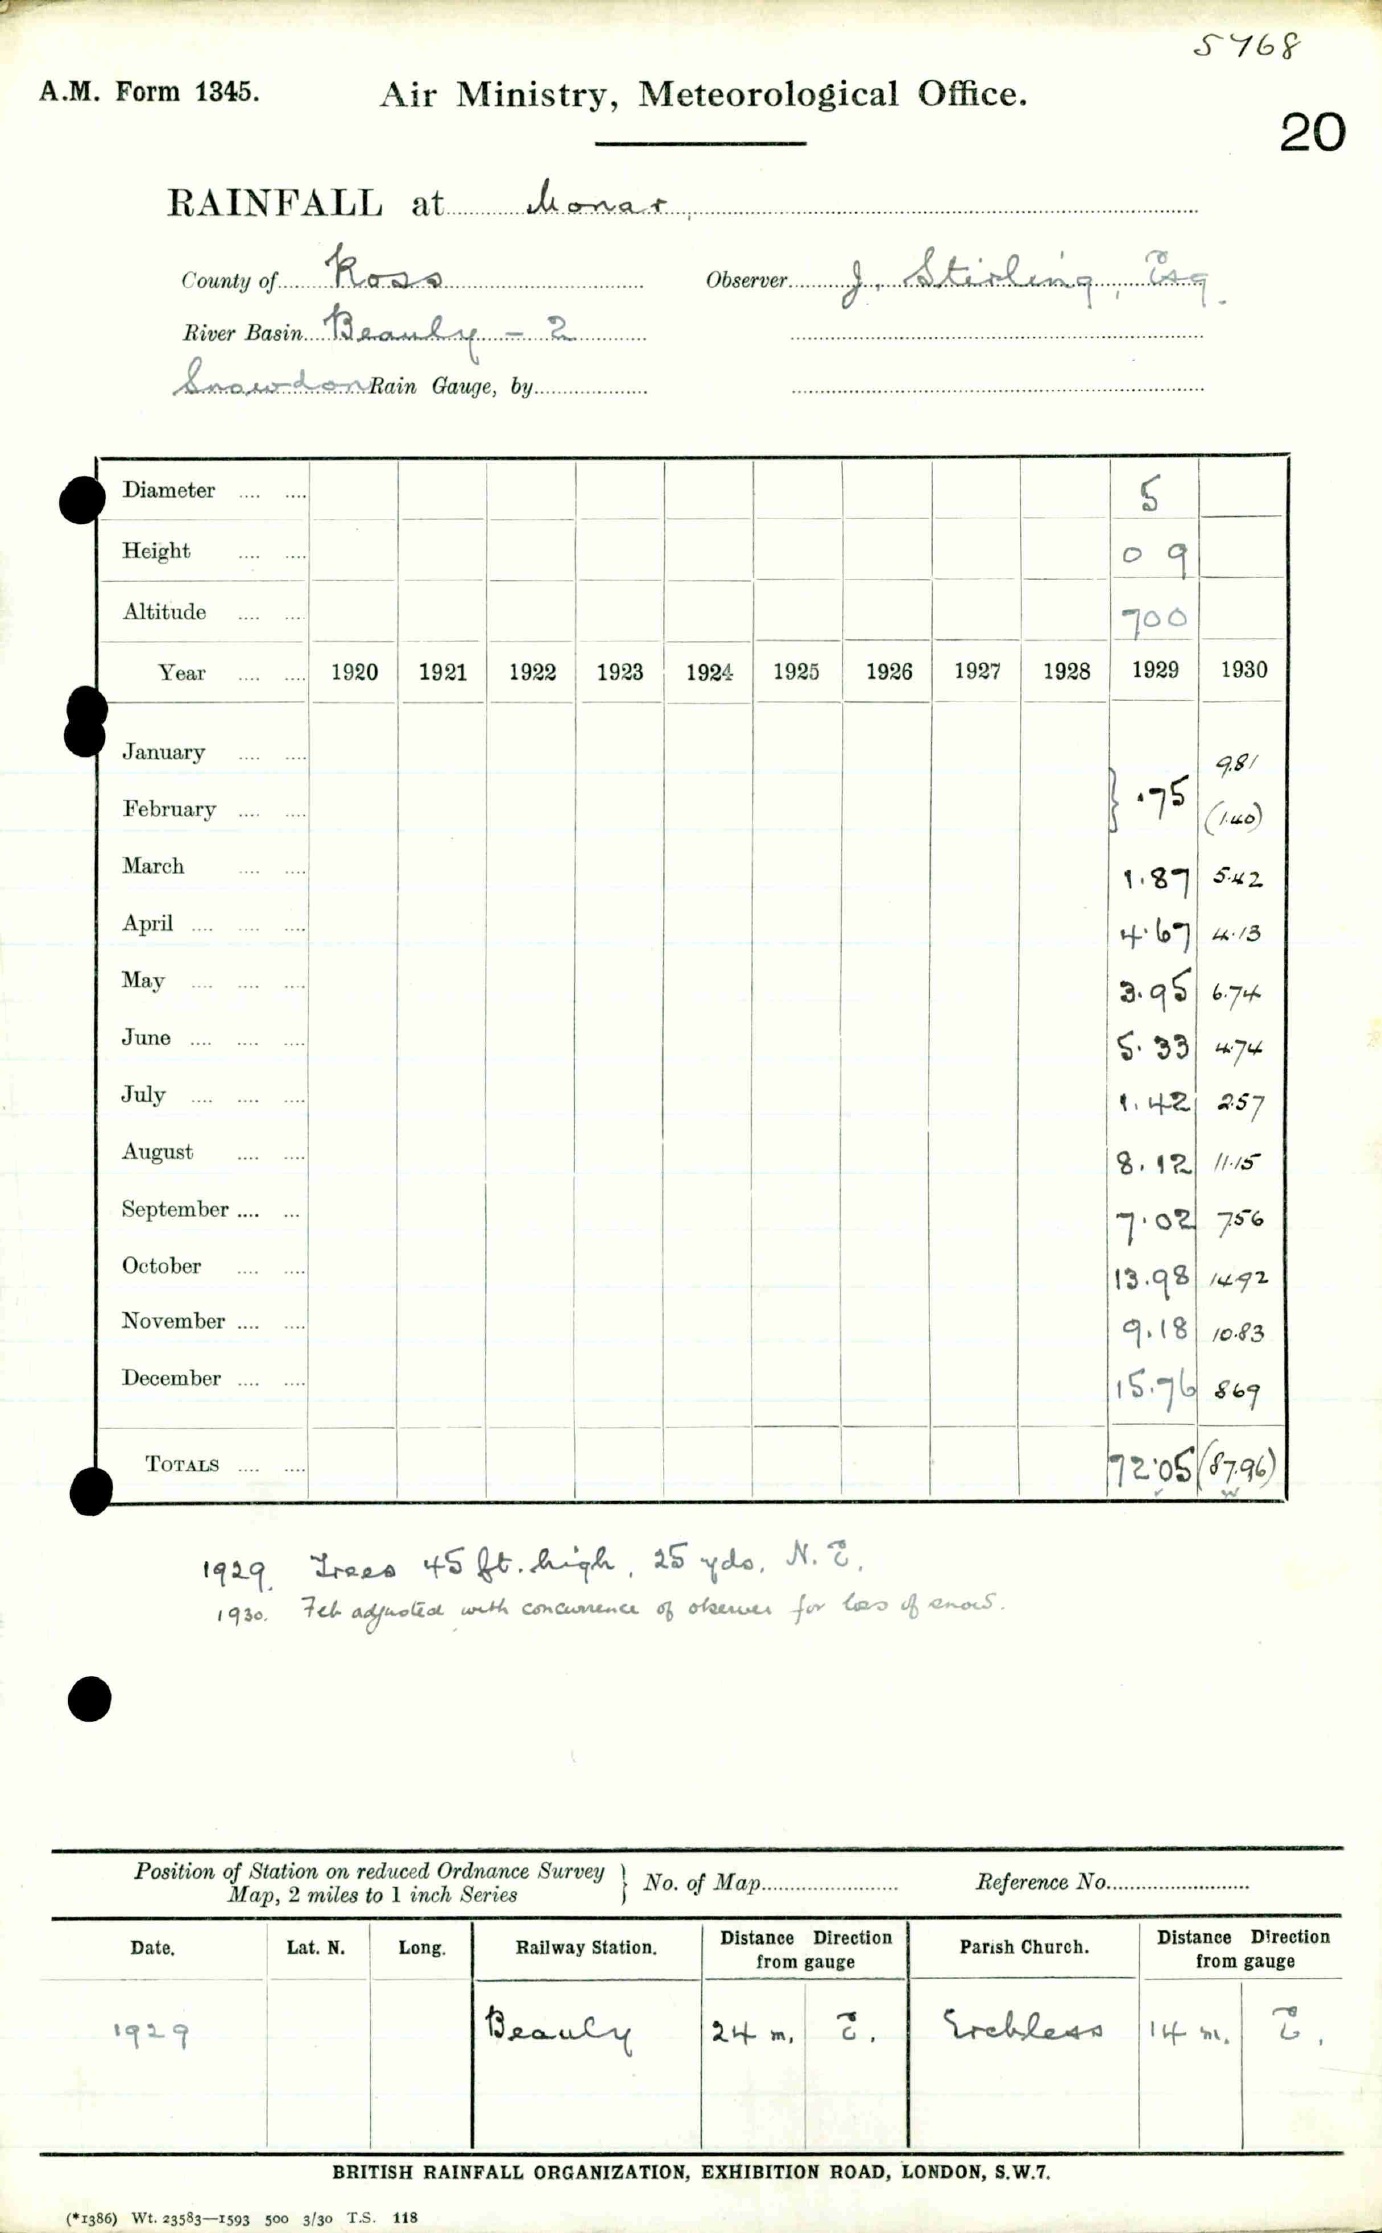 5768
A.M. Form 1345. Air Ministry, Meteorological Office.
20
RAINFALL at Monar,
County of Ross Observer J. Stirling, Esq.
River Basin Beauly - 2
Snowdon Rain Gauge, by
Diameter 5
Height 0 9
Altitude 700
Year 1920 1921 1922 1923 1924 1925 1926 1927 1928 1929 1930
January 9.81
} .75
February (1.40)
March 1.87 5.42
April 4.67 4.13
May 3.95 6.74
June 5.33 4.74
July 1.42 2.57
August 8.12 11.15
September 7.02 7.56
October 13.98 14.92
November 9.18 10.83
December 15.76 8.69
TOTALS 72.05 (87.96)
1929. Trees 45 ft. high, 25 yds. N.E.
1930. Feb adjusted with concurrence of observer for loss of snow.
Position of Station on reduced Ordnance Survey
Map, 2 miles to 1 inch Series } No. of Map Reference No.
Date. Lat. N. Long. Railway Station. Distance Direction from gauge Parish Church. Distance Direction from gauge
1929 Beauly 24 m. E. Erchless 14 m. E.
BRITISH RAINFALL ORGANIZATION, EXHIBITION ROAD, LONDON, S.W.7.
(*1386) Wt. 23583—1593 500 3/30 T.S. 118